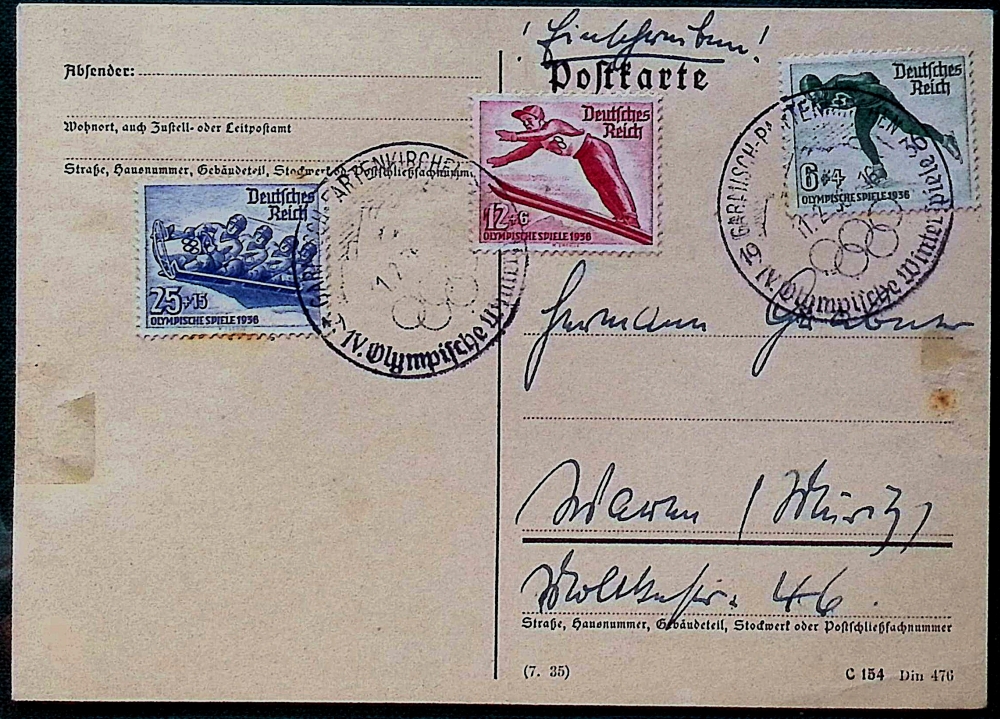 ! Einschreiben !
Postkarte
Absender:
Wohnort, auch Zustell- oder Leitpostamt
Straße, Hausnummer, Gebäudeteil, Stockwerk od. Postschließfachnumm
Deutsches
Reich
25+15
OLYMPISCHE SPIELE 1936
Deutsches
Reich
12+6
OLYMPISCHE SPIELE 1936
Deutsches
Reich
6+4
OLYMPISCHE SPIELE 1936
GARMISCH-PARTENKIRCHEN
IV. Olympische Winter
GARMISCH-PARTENKIRCHEN
11.2.36
IV. Olympische Winterspiele
Hermann
Waren / Müritz,
Moltkestr. 46.
Straße, Hausnummer, Gebäudeteil, Stockwerk oder Postschließfachnummer
(7. 35)
C 154 Din 476